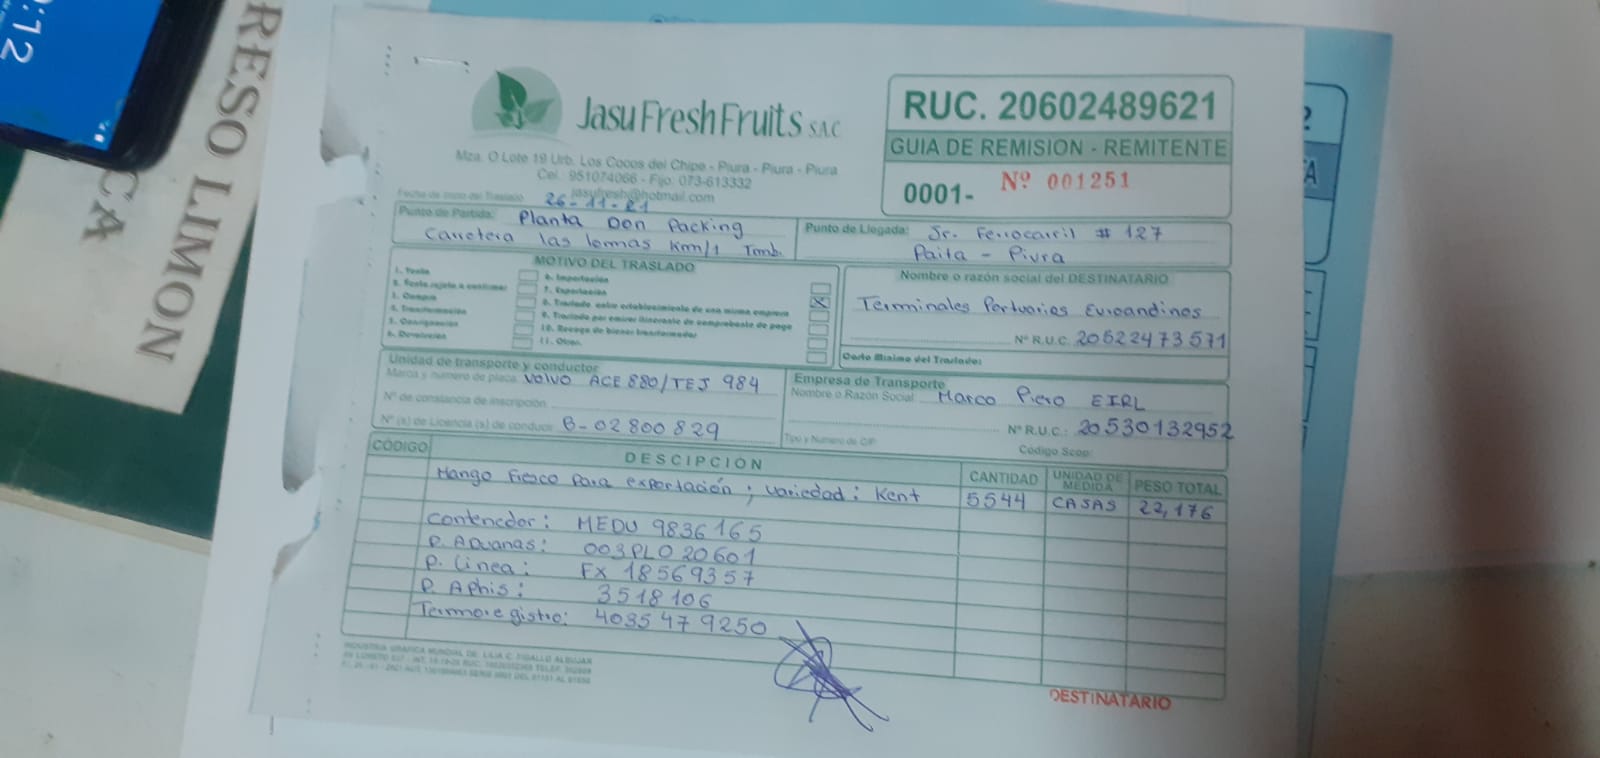 :12
RESO LIMON
CA
Jasu Fresh Fruits S.A.C
Mza. O Lote 19 Urb. Los Cocos del Chipe - Piura - Piura - Piura
Cel.: 951074066 - Fijo: 073-613332
jasufresh@hotmail.com
RUC. 20602489621
GUIA DE REMISION - REMITENTE
0001- Nº 001251
Fecha de inicio del Traslado: 26-11-21
Punto de Partida: Planta Don Packing
Carretera las lomas Km/1 Tamb.
Punto de Llegada: Jr. Ferrocarril # 127
Paita - Piura
MOTIVO DEL TRASLADO
1. Venta
2. Venta sujeta a confirmar
3. Compra
4. Transformación
5. Consignación
6. Devolución
6. Importación
7. Exportación X
8. Traslado entre establecimiento de una misma empresa
9. Traslado por emisor itinerante de comprobante de pago
10. Recojo de bienes transformados
11. Otros
Nombre o razón social del DESTINATARIO
Terminales Portuarios Euroandinos
Nº R.U.C. 20522473571
Costo Mínimo del Traslado:
Unidad de transporte y conductor
Marca y número de placa: Volvo ACE 880/TEJ 984
Nº de constancia de inscripción:
Nº (s) de Licencia (s) de conducir: B-02800829
Empresa de Transporte
Nombre o Razón Social: Marco Piero EIRL
Nº R.U.C.: 20530132952
Tipo y Numero de C/P
Código Scop:
CÓDIGO DESCIPCIÓN CANTIDAD UNIDAD DE MEDIDA PESO TOTAL
Mango Fresco para exportación; variedad: Kent 5544 CAJAS 22,176
Contenedor: MEDU 9836165
P. Aduanas: 003PLO20601
P. Linea: FX 18569357
P. Aphis: 3518106
Termoregistro: 4035479250
INDUSTRIA GRAFICA MUNDIAL DE: LILIA C. FIGALLO ALBUJAR
DESTINATARIO